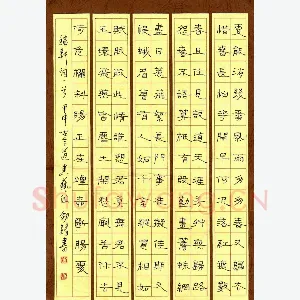 更能消幾番風雨匆匆春又歸去
惜春長怕花開早何況落紅無數
春且住見說道天涯芳草無歸路
怨春不語算只有殷勤畫檐蛛網
盡日惹飛絮長門事準擬佳期又
誤蛾眉曾有人妒千金縱買相如
賦脈脈此情誰訴君莫舞君不見
玉環飛燕皆塵土閑愁最苦休去
倚危欄斜陽正在煙柳斷腸處
稼軒詞一首甲申